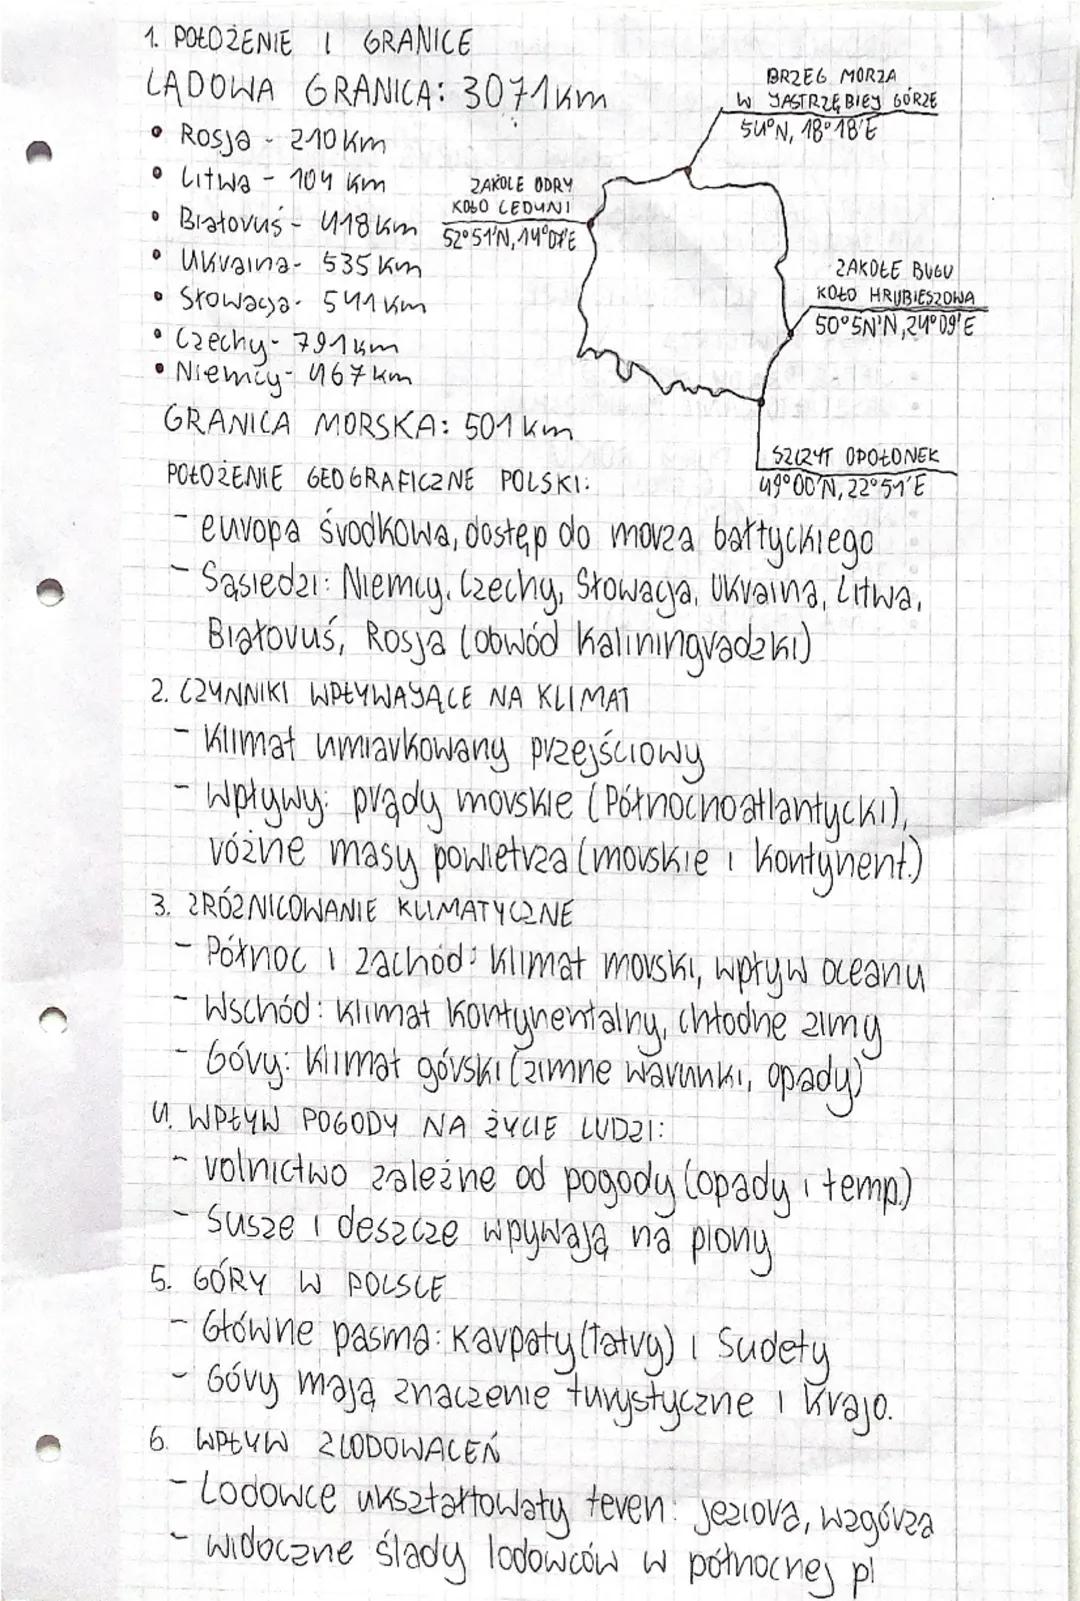 1. POŁOŻENIE I GRANICE
LĄDOWA GRANICA: 3071km
• Rosja - 210 km
• Litwa - 104 km
• Białoruś - 418 km
• Ukraina - 535 km
• Słowacja - 541 km
• Czechy - 791 km
• Niemcy - 467 km
GRANICA MORSKA: 501 km
BRZEG MORZA
W JASTRZĘBIEJ GÓRZE
54°N, 18°18'E
ZAKOLE ODRY
KOŁO CEDYNI
52°51'N, 14°07'E
ZAKOLE BUGU
KOŁO HRUBIESZOWA
50°5N'N, 24°09'E
SZCZYT OPOŁONEK
49°00'N, 22°51'E
POŁOŻENIE GEOGRAFICZNE POLSKI:
- europa środkowa, dostęp do morza bałtyckiego
- Sąsiedzi: Niemcy, Czechy, Słowacja, Ukraina, Litwa,
Białoruś, Rosja (obwód Kaliningradzki)
2. CZYNNIKI WPŁYWAJĄCE NA KLIMAT
- Klimat umiarkowany przejściowy
- Wpływy: prądy morskie (Północnoatlantycki),
różne masy powietrza (morskie i kontynent.)
3. ZRÓŻNICOWANIE KLIMATYCZNE
- Północ i zachód: klimat morski, wpływ oceanu
- Wschód: klimat kontynentalny, chłodne zimy
- Góry: klimat górski (zimne warunki, opady)
4. WPŁYW POGODY NA ŻYCIE LUDZI:
- rolnictwo zależne od pogody (opady i temp.)
- Susze i deszcze wpywają na plony
5. GÓRY W POLSCE
- Główne pasma: Karpaty (Tatry) i Sudety
- Góry mają znaczenie turystyczne i krajo.
6. WPŁYW ZLODOWACEŃ
- Lodowce ukształtowały teren: jeziora, wzgórza
- widoczne ślady lodowców w północnej pl